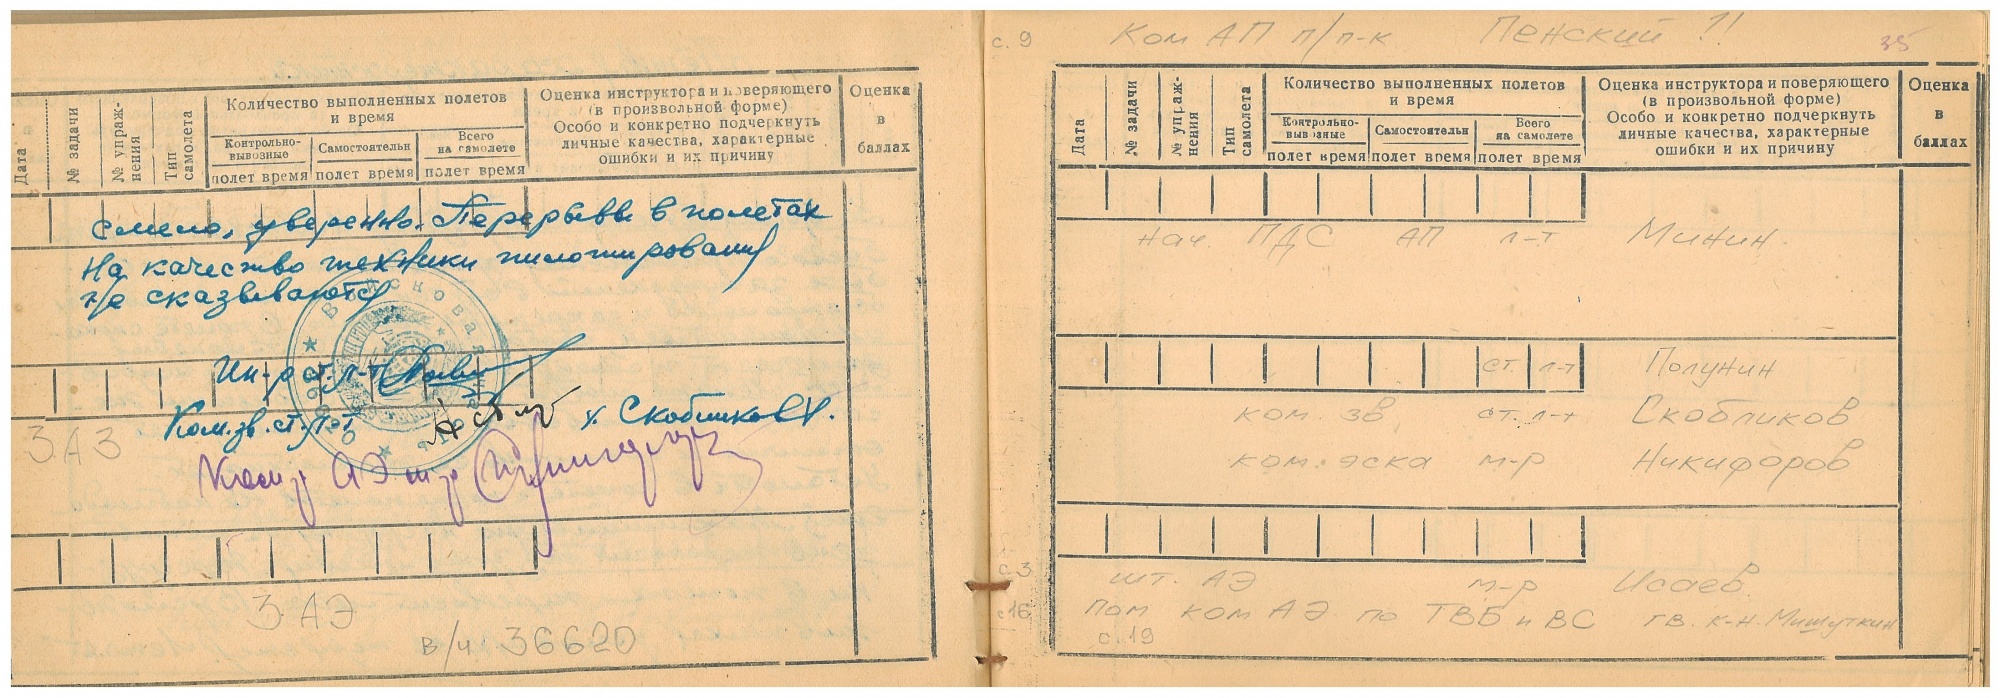 Дата
№ задачи
№ упраж-
нения
Тип
самолета
Количество выполненных полетов
и время
Контрольно-
вывозные
Самостоятельн
Всего
на самолете
полет время
полет время
полет время
Оценка инструктора и поверяющего
(в произвольной форме)
Особо и конкретно подчеркнуть
личные качества, характерные
ошибки и их причину
Оценка
в
баллах
смело, уверенно. Перерывы в полетах
на качество техники пилотирования
не сказываются
Войсковая часть
Ин-р ст. л-т
Ком. зв. ст. л-т
Скобликов
3 АЭ
Ком-р АЭ м-р
3 АЭ
в/ч 36620
с. 9
Ком АП п/п-к Пенский !!
35
Дата
№ задачи
№ упраж-
нения
Тип
самолета
Количество выполненных полетов
и время
Контрольно-
вывозные
Самостоятельн
Всего
на самолете
полет время
полет время
полет время
Оценка инструктора и поверяющего
(в произвольной форме)
Особо и конкретно подчеркнуть
личные качества, характерные
ошибки и их причину
Оценка
в
баллах
нач. ПДС АП л-т Минин.
ст. л-т Полунин
ком. зв ст. л-т Скобликов
ком. эска м-р Никифоров
с. 3
шт. АЭ м-р Исаев
с 16
пом ком АЭ по ТВБ и ВС гв. к-н. Мишуткин
с. 19